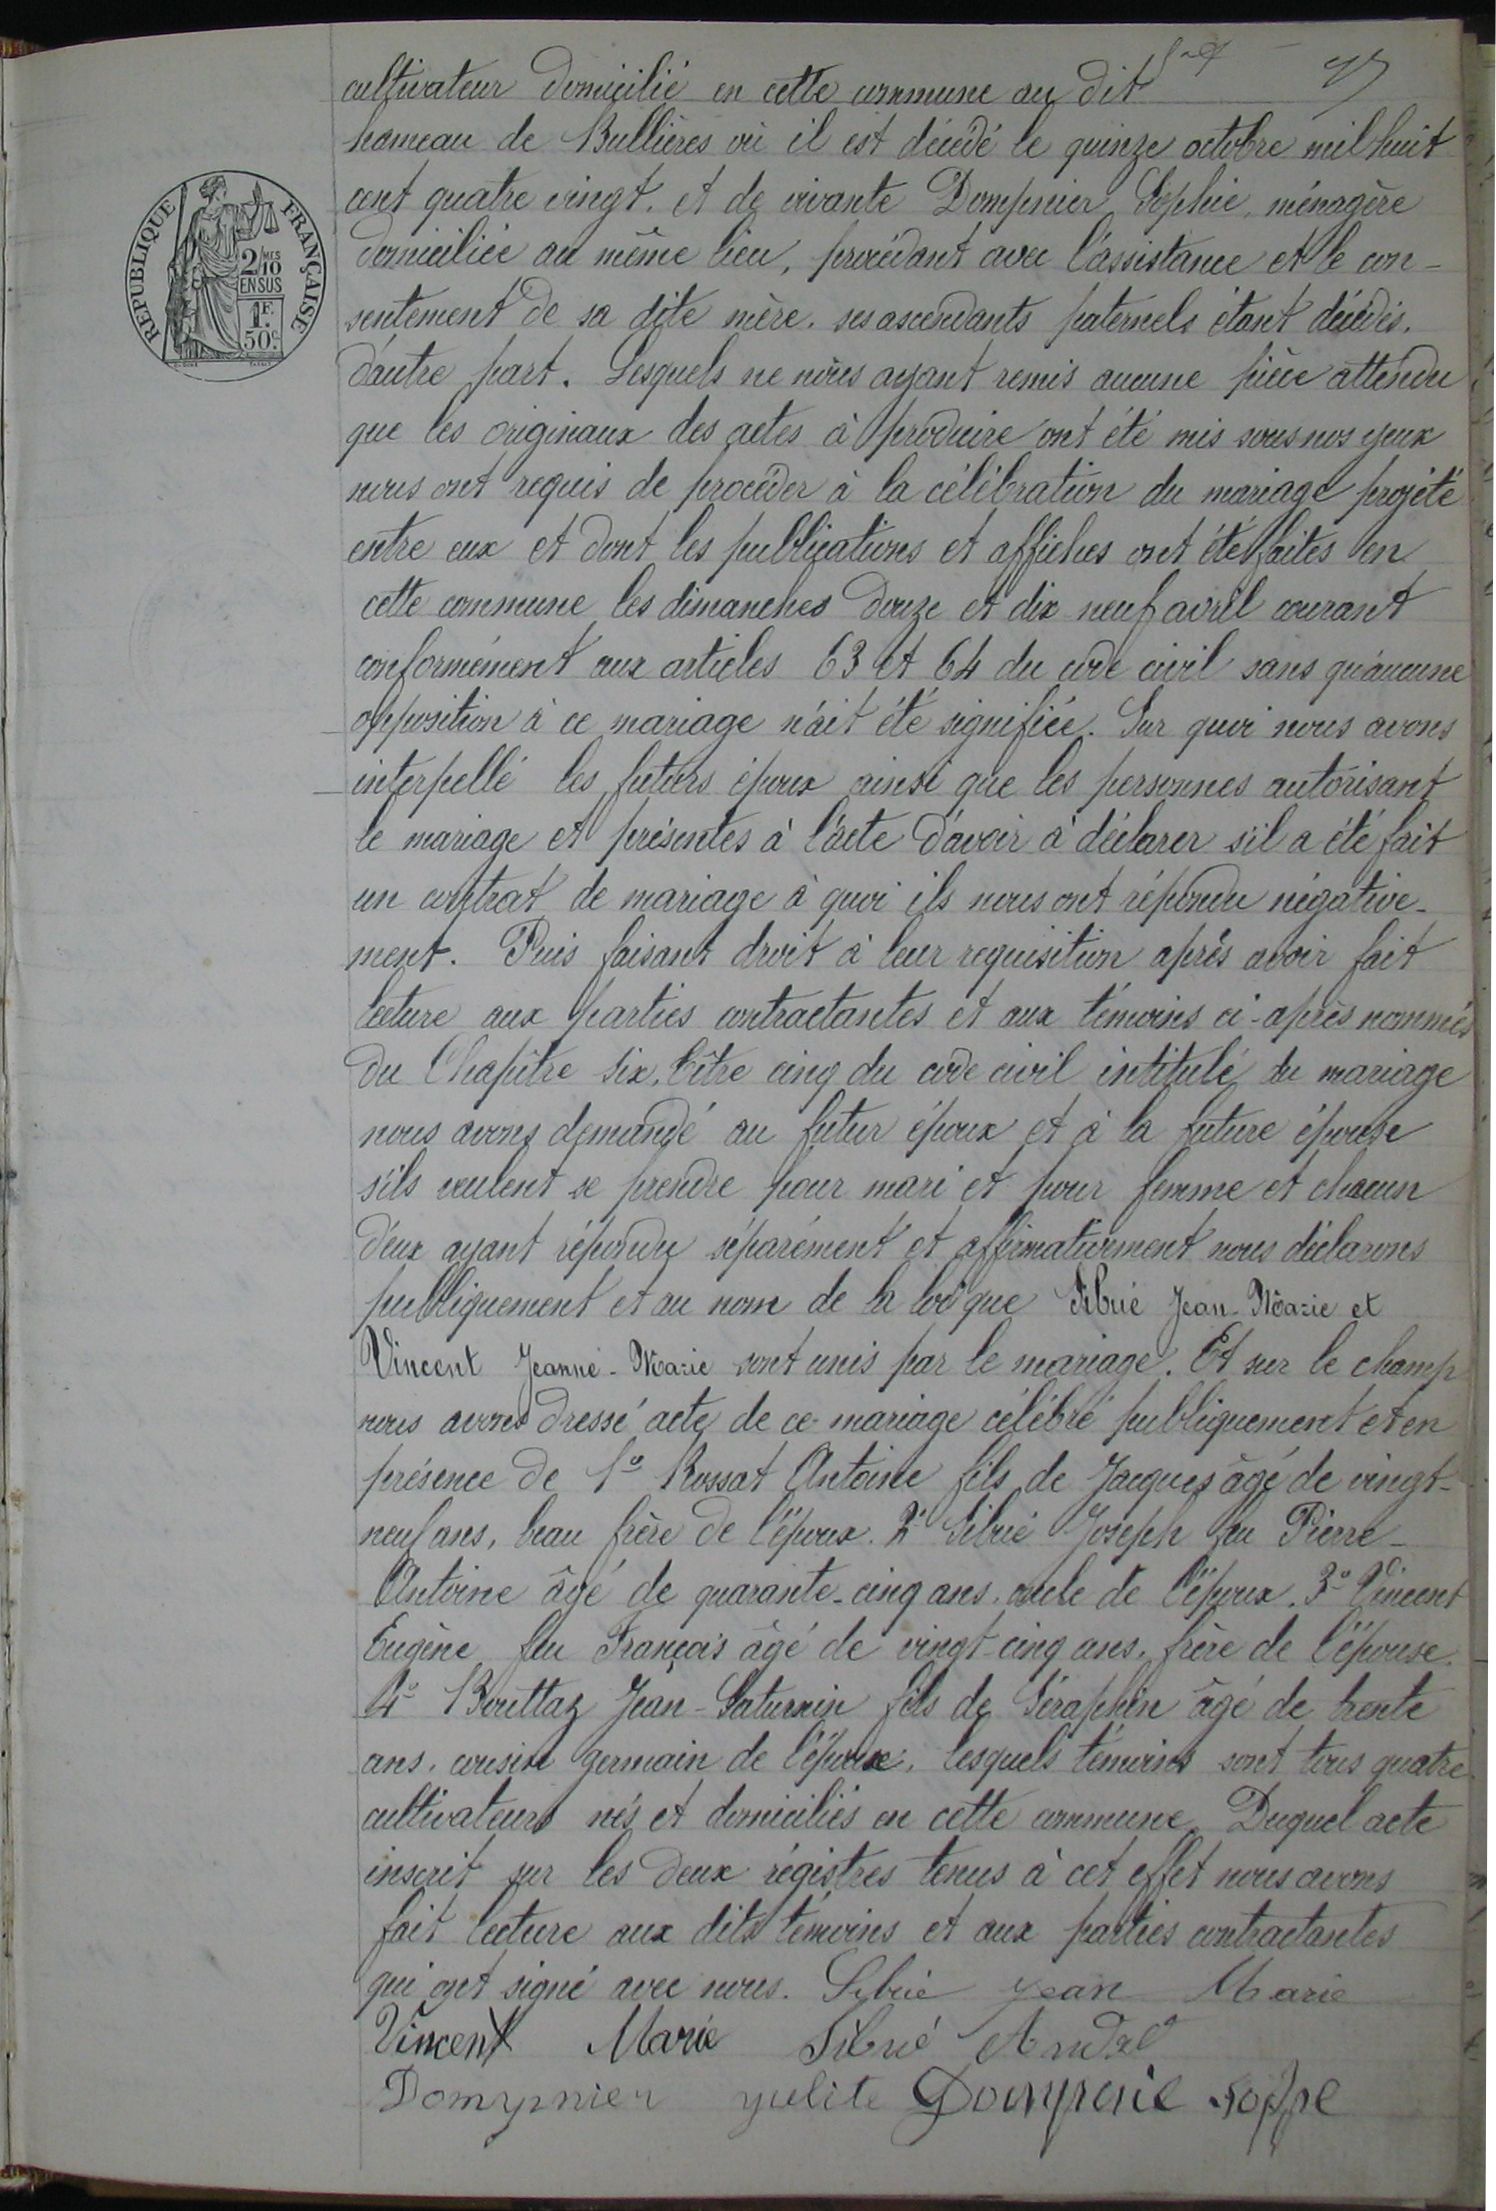 cultivateur domicilié en cette commune au dit
hameau de Bullières où il est décédé le quinze octobre mil huit
cent quatre vingt. et de vivante Dompnier Sophie, ménagère
domiciliée au même lieu, procédant avec l'assistance et le con-
sentement de sa dite mère. ses ascendants paternels étant décédés.
d'autre part. Lesquels ne nous ayant remis aucune pièce attendu
que les originaux des actes à produire ont été mis sous nos yeux
nous ont requis de procéder à la célébration du mariage projeté
entre eux et dont les publications et affiches ont été faites en
cette commune les dimanches douze et dix neuf avril courant
conformément aux articles 63 et 64 du code civil sans qu'aucune
opposition à ce mariage n'ait été signifiée. Sur quoi nous avons
interpellé les futurs époux ainsi que les personnes autorisant
le mariage et présentes à l'acte d'avoir à déclarer s'il a été fait
un contrat de mariage à quoi ils nous ont répondu négative-
ment. Puis faisant droit à leur requisition après avoir fait
lecture aux parties contractantes et aux témoins ci-après nommés
du Chapître six, titre cinq du code civil intitulé du mariage
nous avons demandé au futur époux et à la future épouse
s'ils veulent se prendre pour mari et pour femme et chacun
d'eux ayant répondu séparément et affirmativement nous déclarons
publiquement et au nom de la loi que Sibué Jean-Marie et
Vincent Jeanne-Marie sont unis par le mariage. Et sur le champ
nous avons dressé acte de ce mariage célébré publiquement et en
présence de 1º Rossat Antoine fils de Jacques âgé de vingt-
neuf ans, beau frère de l'époux. 2º Sibué Joseph feu Pierre-
Antoine âgé de quarante-cinq ans. oncle de l'époux. 3º Vincent
Eugène feu François âgé de vingt-cinq ans. frère de l'épouse.
4º Bouttaz Jean-Saturnin fils de Séraphin âgé de trente
ans. cousin germain de l'épouse. lesquels témoins sont tous quatre
cultivateurs nés et domiciliés en cette commune. Duquel acte
inscrit sur les deux régistres tenus à cet effet nous avons
fait lecture aux dits témoins et aux parties contractantes
qui ont signé avec nous. Sibué Jean Marie
Vincent Marie Sibué André
Dompnier julite Dompnie soffie
REPUBLIQUE FRANÇAISE
2/10
MES
EN SUS
1F.
50c.